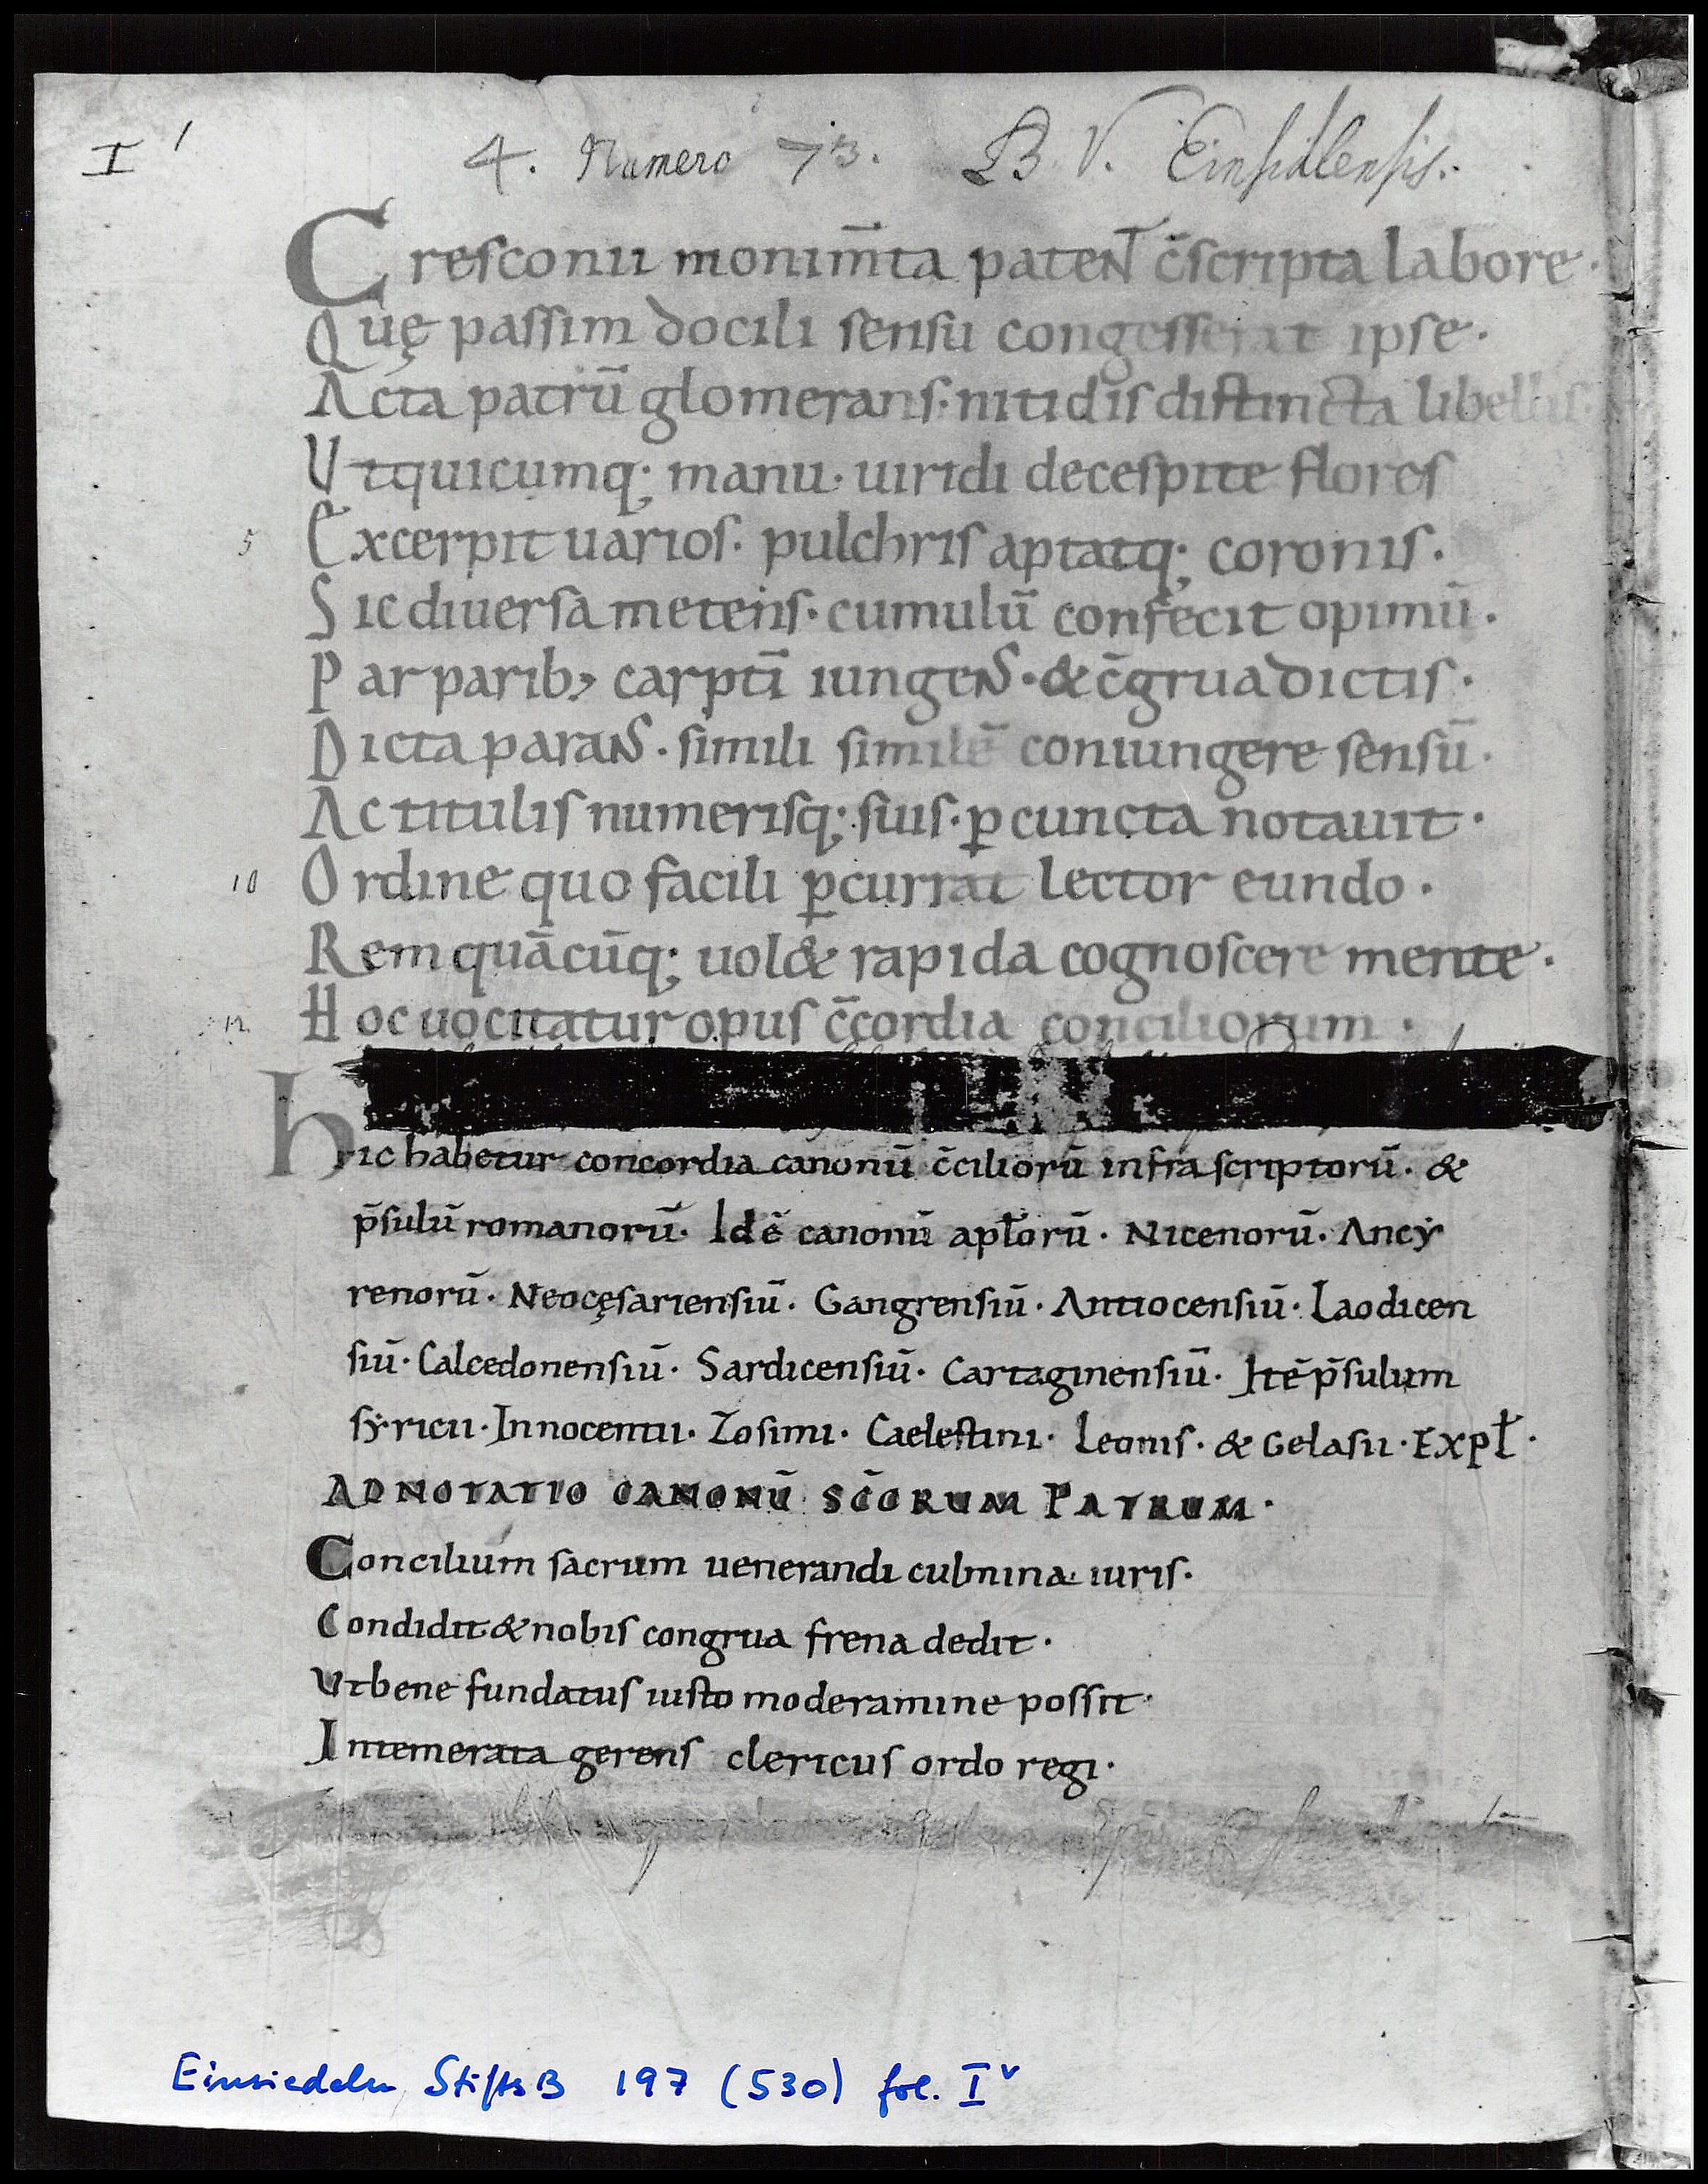 I 1
4. Numero 73. B V. Einsidlensis.
Cresconii monim̄ta pateNT c̄scripta labore·
Quę passim docili sensu congesserat ipse·
Acta patrū glomerans· nitidis distincta libellis·
Vtquicumq; manu· uiridi decespite flores
5 Excerpit uarios· pulchris aptatq; coronis·
Sic diuersa metens· cumulū confecit opimū·
Par parib; carptī iungeNS· & c̄grua dictis·
Dicta paraNS· simili similē coniungere sensū·
Ac titulis numerisq; suis· ꝑ cuncta notauit·
10 Ordine quo facili ꝑcurrat lector eundo·
Rem quācūq; uol& rapida cognoscere mente·
12 Hoc uocitatur opus c̄cordia conciliorum·
hic habetur concordia canonū c̄ciliorū infra scriptorū· &
p̄sulū romanorū· Idē canonū apl̄orū· Nicenorū· Ancẏ
renorū· Neocęsariensiū· Gangrensiū· Antiocensiū· Laodicen
siū· Calcedonensiū· Sardicensiū· Cartaginensiū· Itē p̄sulum
sẏricii· Innocentii· Zosimi· Caelestini· Leonis· & Gelasii· Expl̄·
ADNOTATIO CANONŪ SC̄ORUM PATRUM·
Concilium sacrum uenerandi culmina iuris·
Condidit & nobis congrua frena dedit·
Vtbene fundatus iusto moderamine possit·
Intemerata gerens clericus ordo regi·
Einsiedeln StiftsB 197 (530) fol. Iv